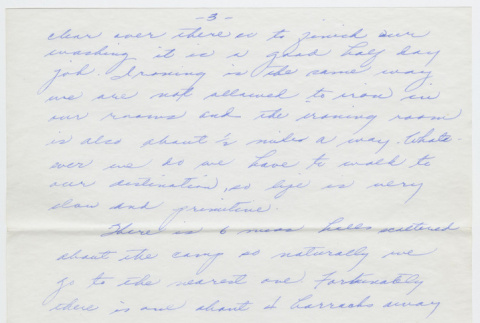 -3-
clear over there so to finish our
washing it is a good half day
job. Ironing is the same way
we are not allowed to iron in
our rooms and the ironing room
is also about ½ miles a way. Whats-
ever we do we have to walk to
our destination, so life is very
slow and primitive.
There is 6 mess halls scattered
about the camp so naturally we
go to the nearest one Fortunately
there is one about 4 barracks away